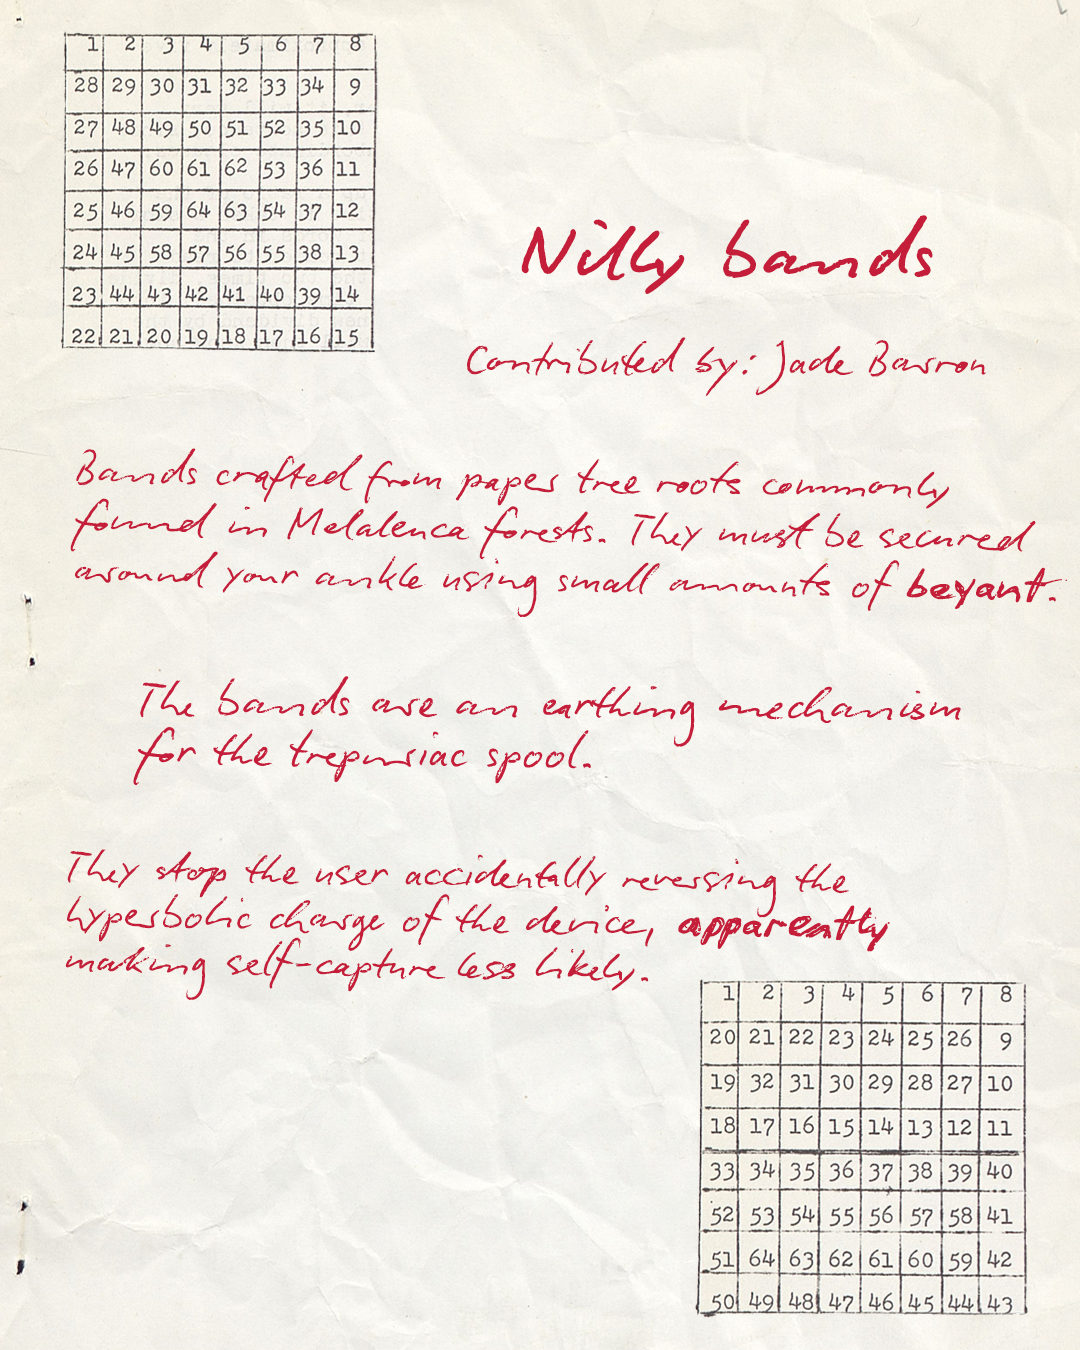 1 2 3 4 5 6 7 8
28 29 30 31 32 33 34 9
27 48 49 50 51 52 35 10
26 47 60 61 62 53 36 11
25 46 59 64 63 54 37 12
24 45 58 57 56 55 38 13
23 44 43 42 41 40 39 14
22 21 20 19 18 17 16 15
Nilly bands
Contributed by: Jade Barron
Bands crafted from paper tree roots commonly
found in Melaleuca forests. They must be secured
around your ankle using small amounts of beyant.
The bands are an earthing mechanism
for the trepursiac spool.
They stop the user accidentally reversing the
hyperbolic charge of the device, apparently
making self-capture less likely.
1 2 3 4 5 6 7 8
20 21 22 23 24 25 26 9
19 32 31 30 29 28 27 10
18 17 16 15 14 13 12 11
33 34 35 36 37 38 39 40
52 53 54 55 56 57 58 41
51 64 63 62 61 60 59 42
50 49 48 47 46 45 44 43